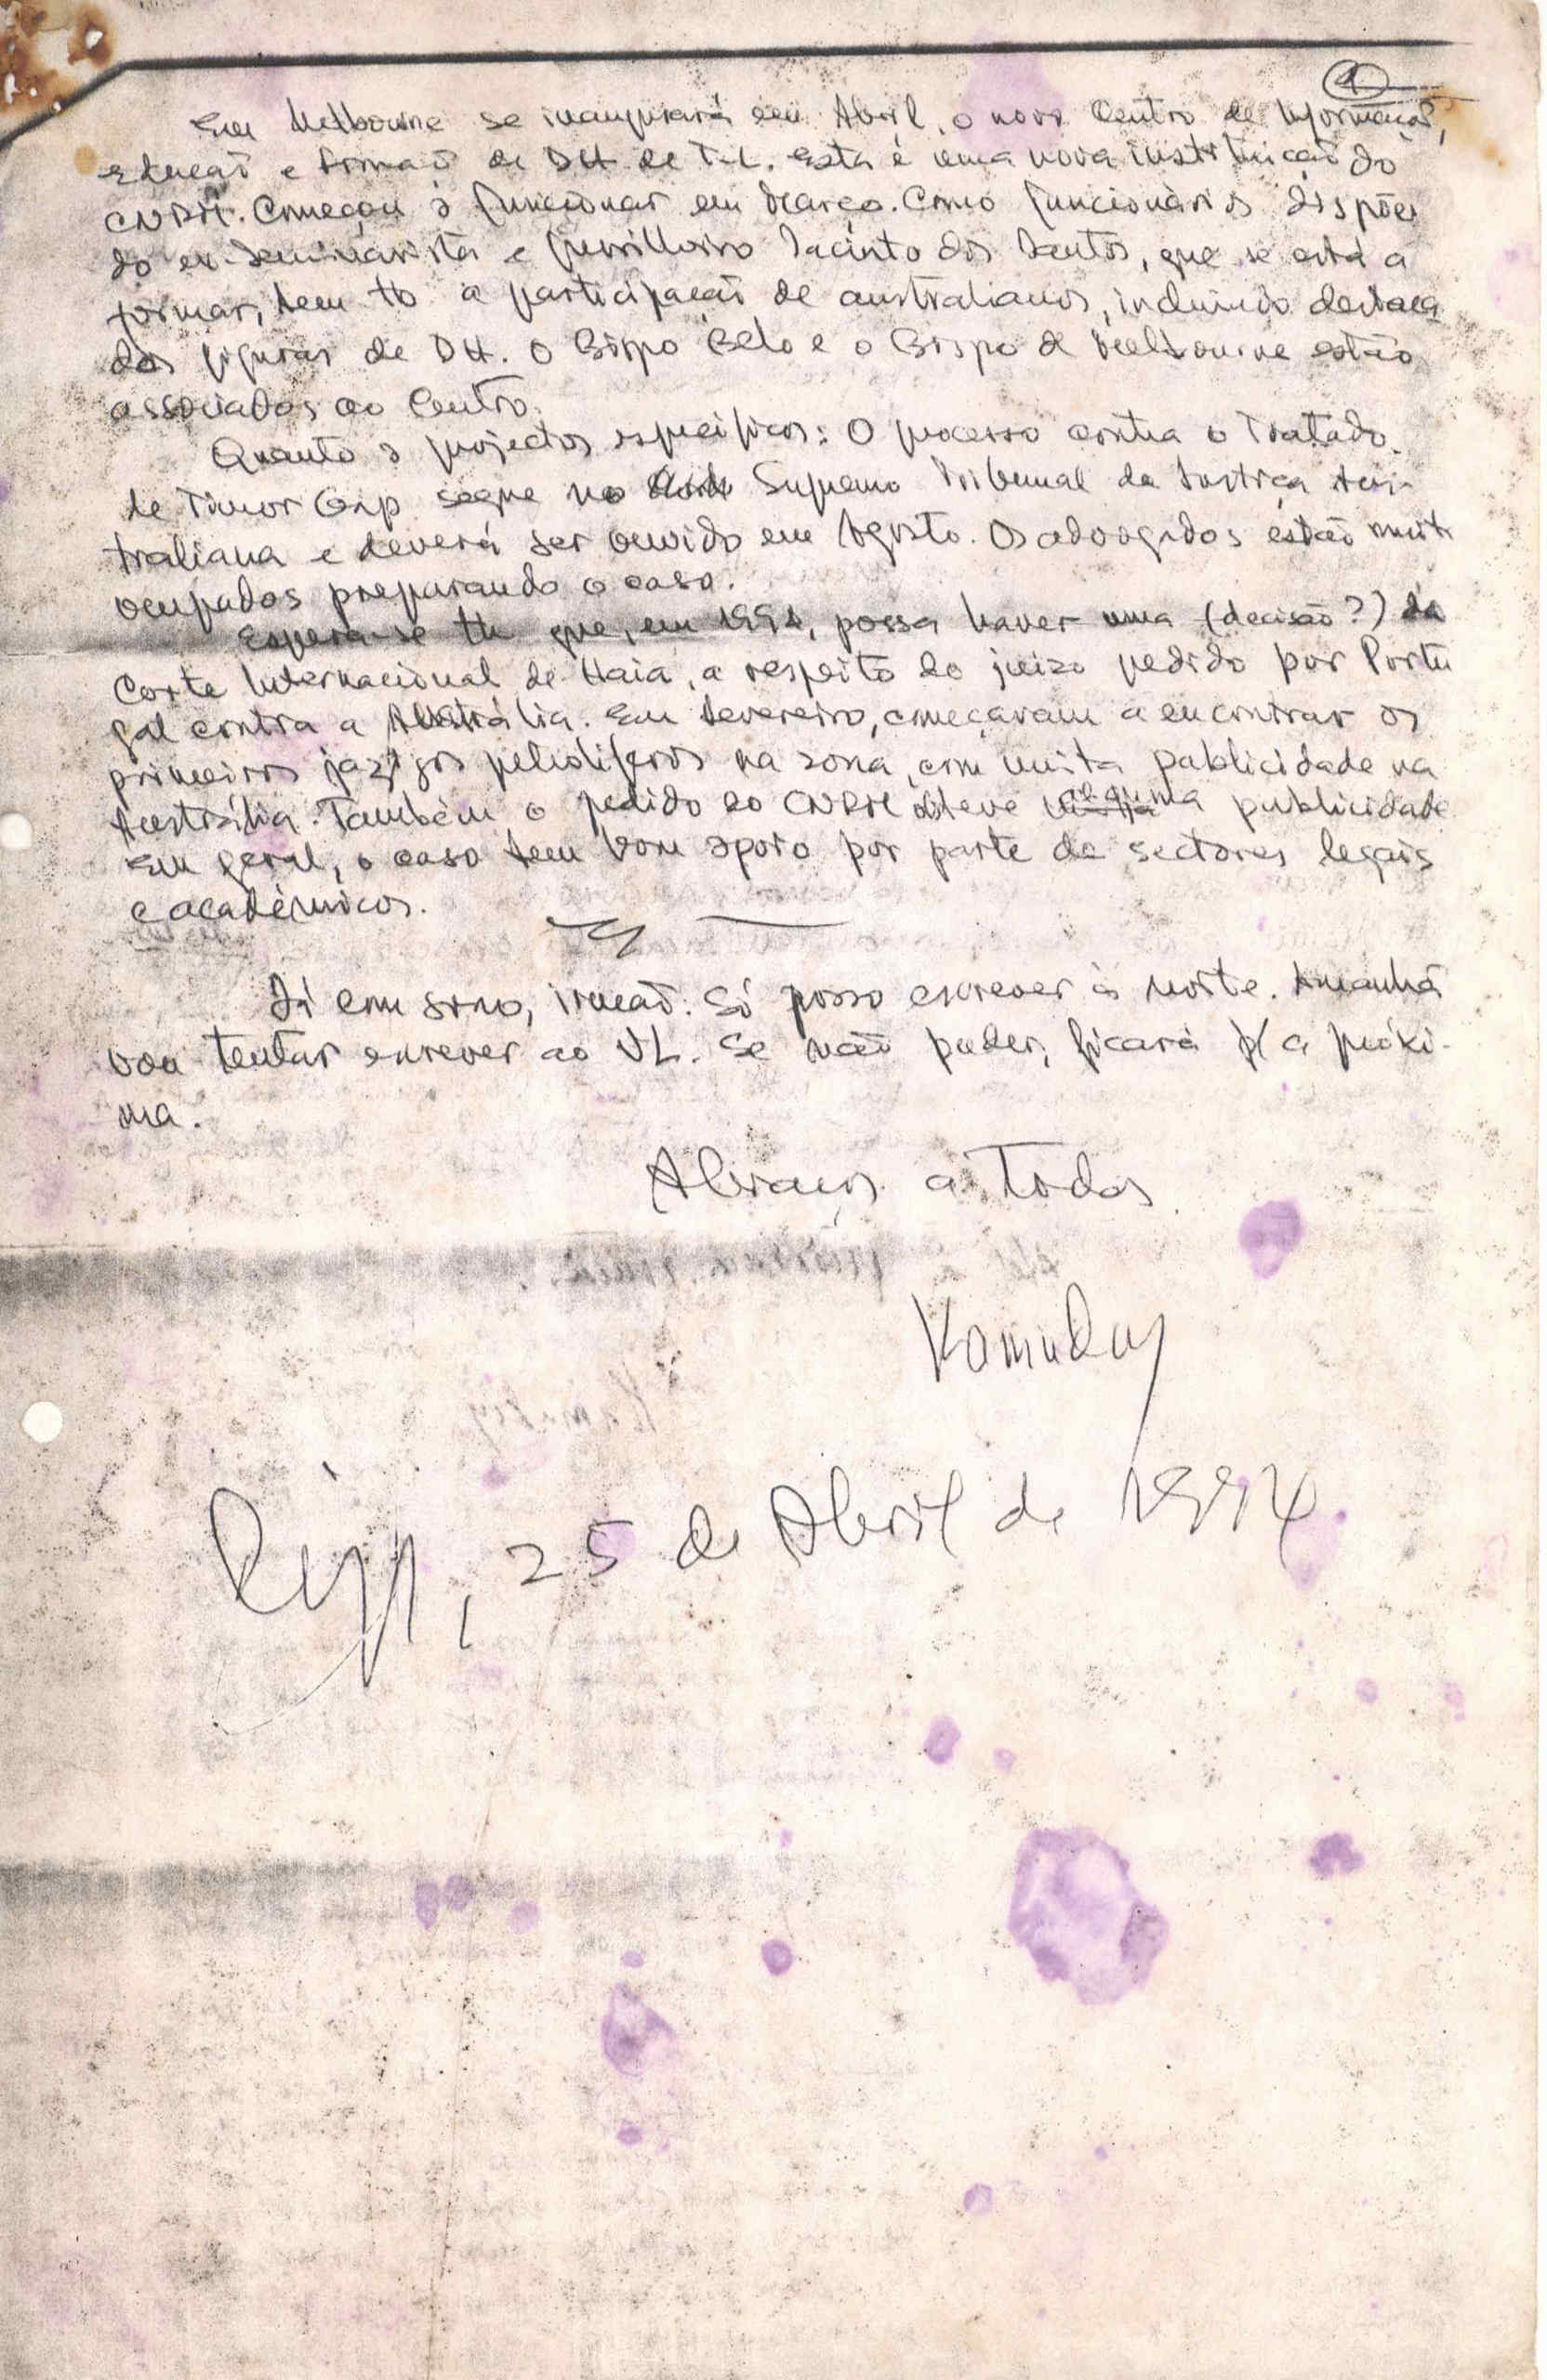 4
Em Melbourne se inaugurará em Abril, o novo Centro de Informação,
educação e formação de DH de T-L. Esta é uma nova instituição do
CNRM. Começou a funcionar em Março. Como funcionários dispões
do ex-seminarista e guerrilheiro Jacinto dos Santos, que se está a
formar, tem tb a participação de australianos, incluindo destaca
das figuras de DH. O Bispo Belo e o Bispo de Melbourne estão
associados ao Centro.
Quanto a projectos específicos: O processo contra o Tratado
de Timor Gap segue no Supremo Tribunal da Justiça Aus-
traliana e deverá ser ouvido em Agosto. Os advogados estão muito
ocupados preparando o caso.
Espera-se tb que, em 1994, possa haver uma (decisão?) da
Corte Internacional de Haia, a respeito do juizo pedido por Portu
gal contra a Austrália. Em Fevereiro, começaram a encontrar os
primeiros jazigos petrolíferos na zona, com muita publicidade na
Austrália. Também o pedido do CNRM obteve alguma publicidade
Em geral, o caso tem bom apoio por parte de sectores legais
e académicos.
Já com sono, irmão. Só posso escrever à noite. Amanhã
vou tentar escrever ao VL. Se não puder, ficará p/ a próxi-
ma.
Abraços a Todos
, 25 de Abril de 1994